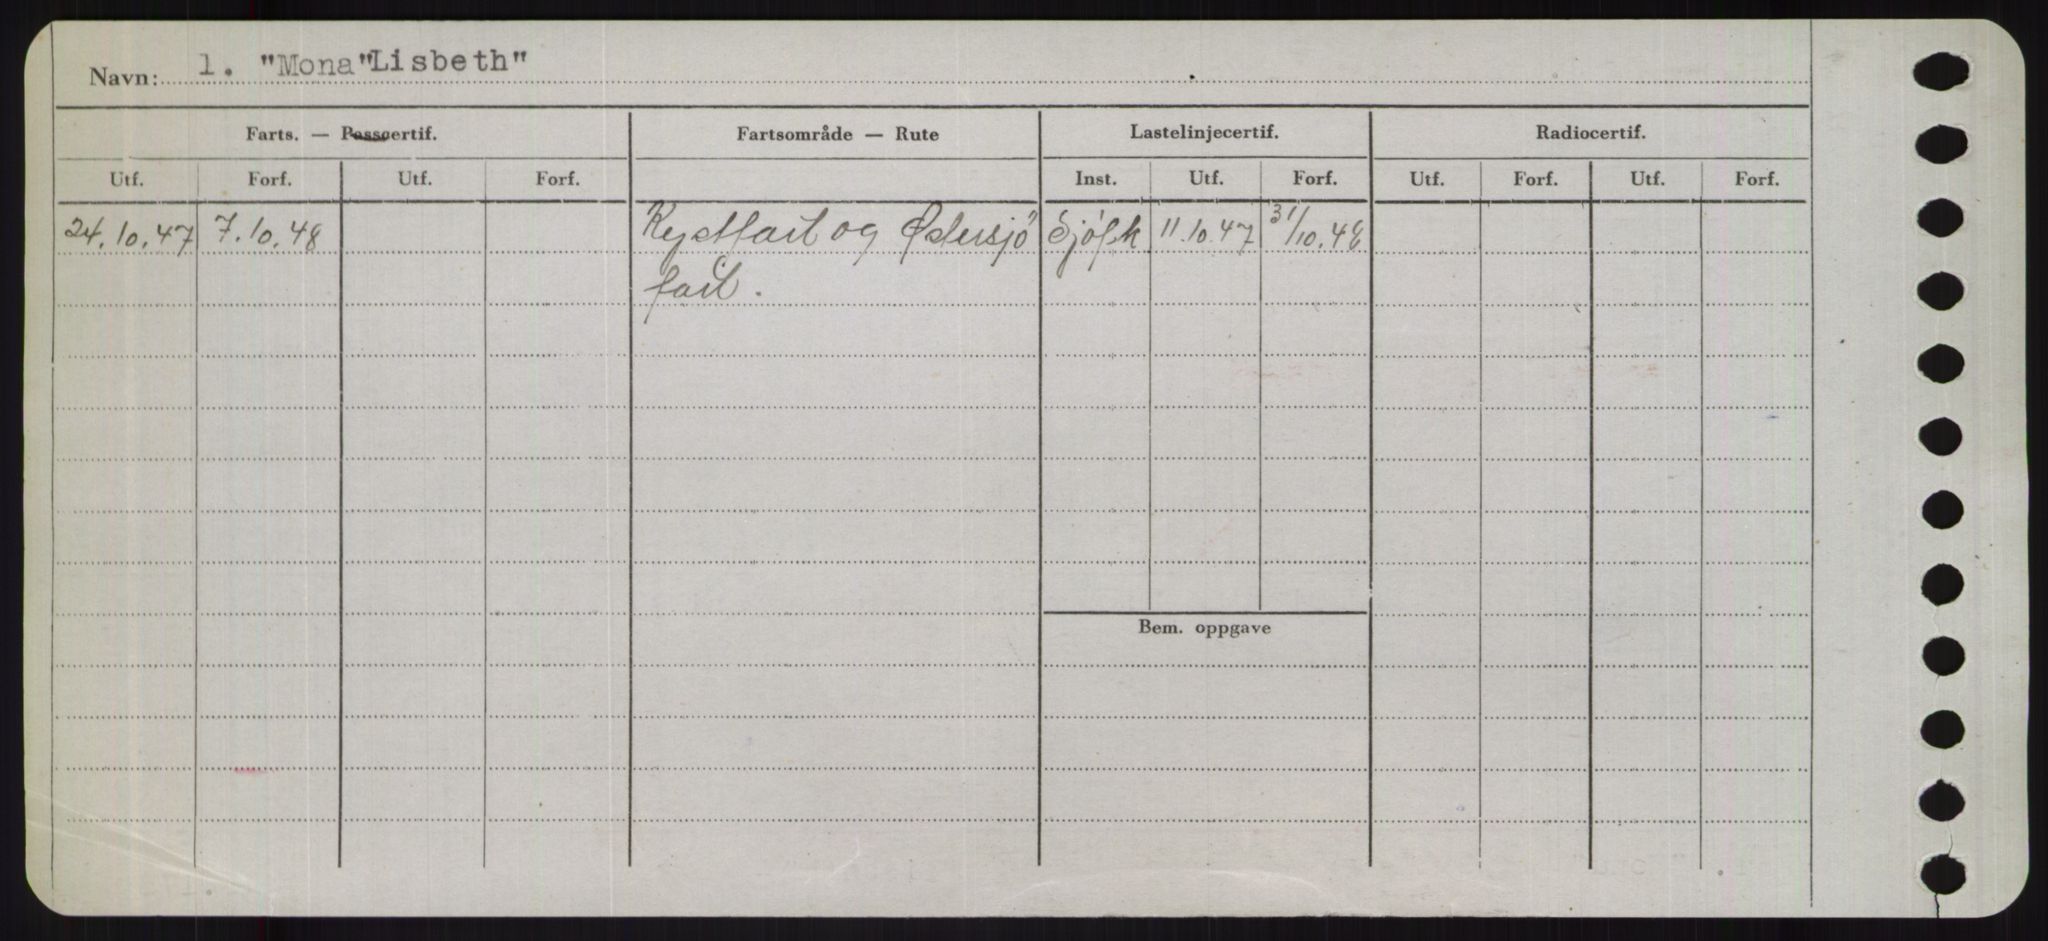 Navn: 1. "Mona"Lisbeth"
Farts. — Passcertif. Fartsområde — Rute Lastelinjecertif. Radiocertif.
Utf. Forf. Utf. Forf. Inst. Utf. Forf. Utf. Forf. Utf. Forf.
24.10.47 7.10.48 Kystfart og Østersjö Sjöfk 11.10.47 31/10.48
fart.
Bem. oppgave